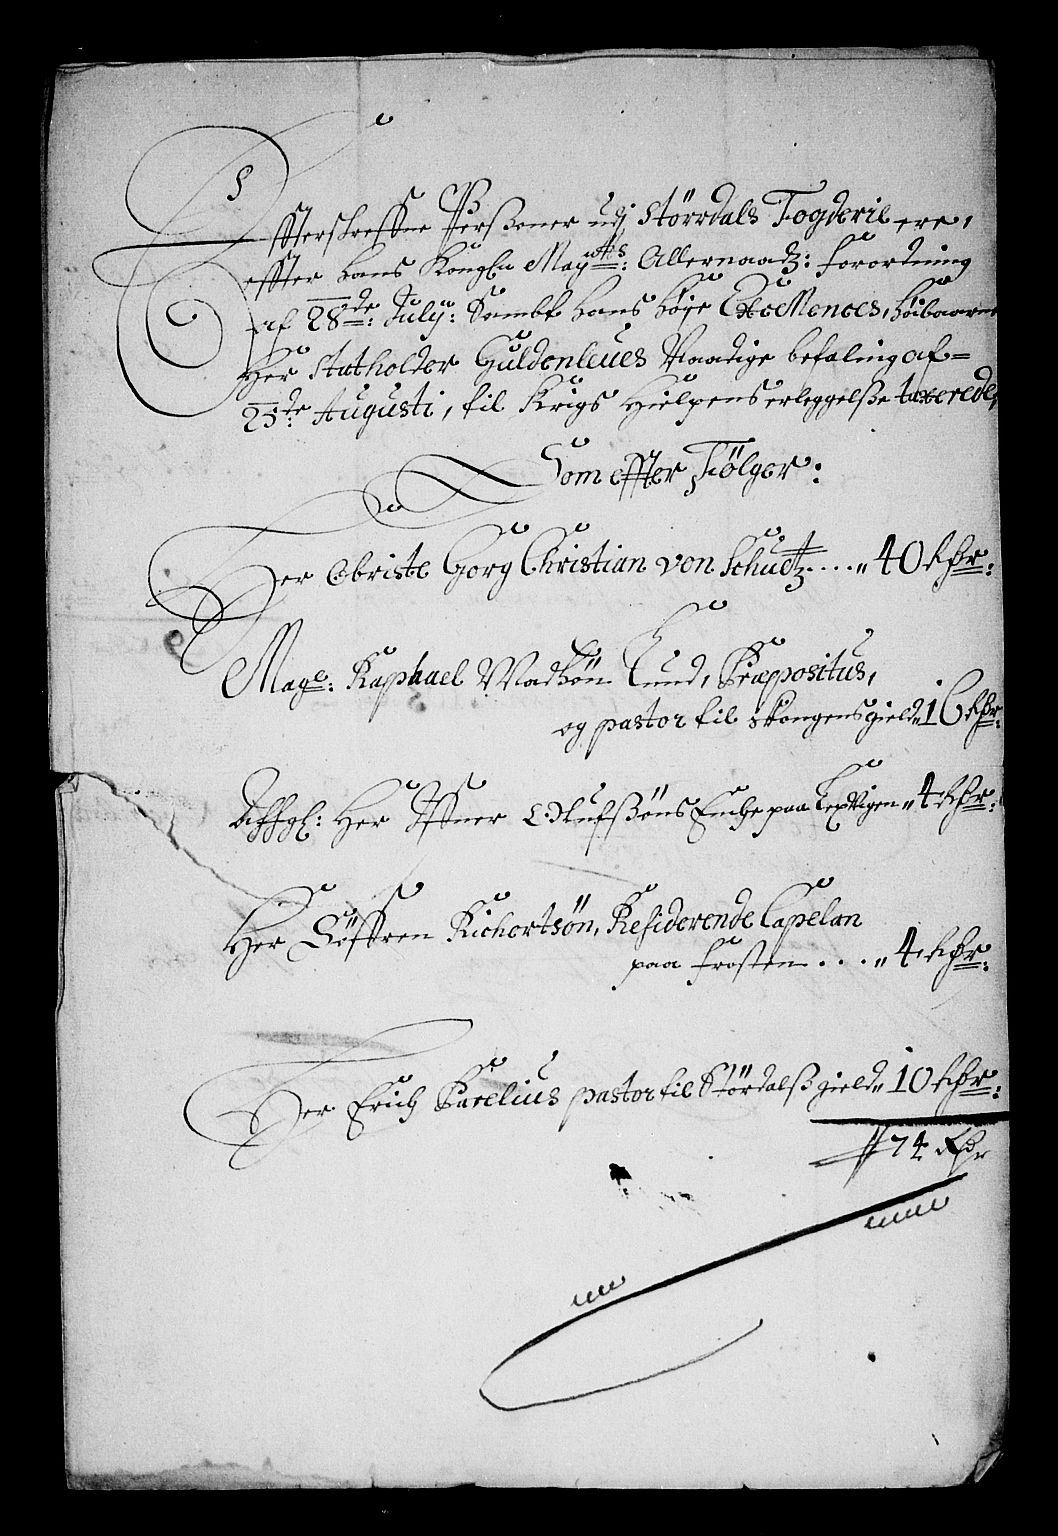 Effterschreffne Persohner udj Störrdals Fogderie ere,
effter hans Kongl: May:ttes: Allernaadg: forordning
af 28de: July: Sambt hans höje Excellences, höibaarne
Her Statholder Güldenleues Naadige befaling af=
25de: Augusti, til Krigs Hielpens erleggelße taxerede,
Som effter Fölger:
Her Obriste Gorg Christian von Schultz.... „ 40 Rdr:
Mage: Raphael Madsön Lund, Præpositus,
og pastor til skongens gield „ 16 Rdr:
Affgl: Her Iffuer Olufsöns Encke paa Lexvigen „ 4 Rdr:
Her Söffren Richertsön, Residerende Capelan
paa frosten.... „ 4 Rdr:
Her Erich Barelius pastor til Stördalß gield „ 10 Rdr:
74 Rdr